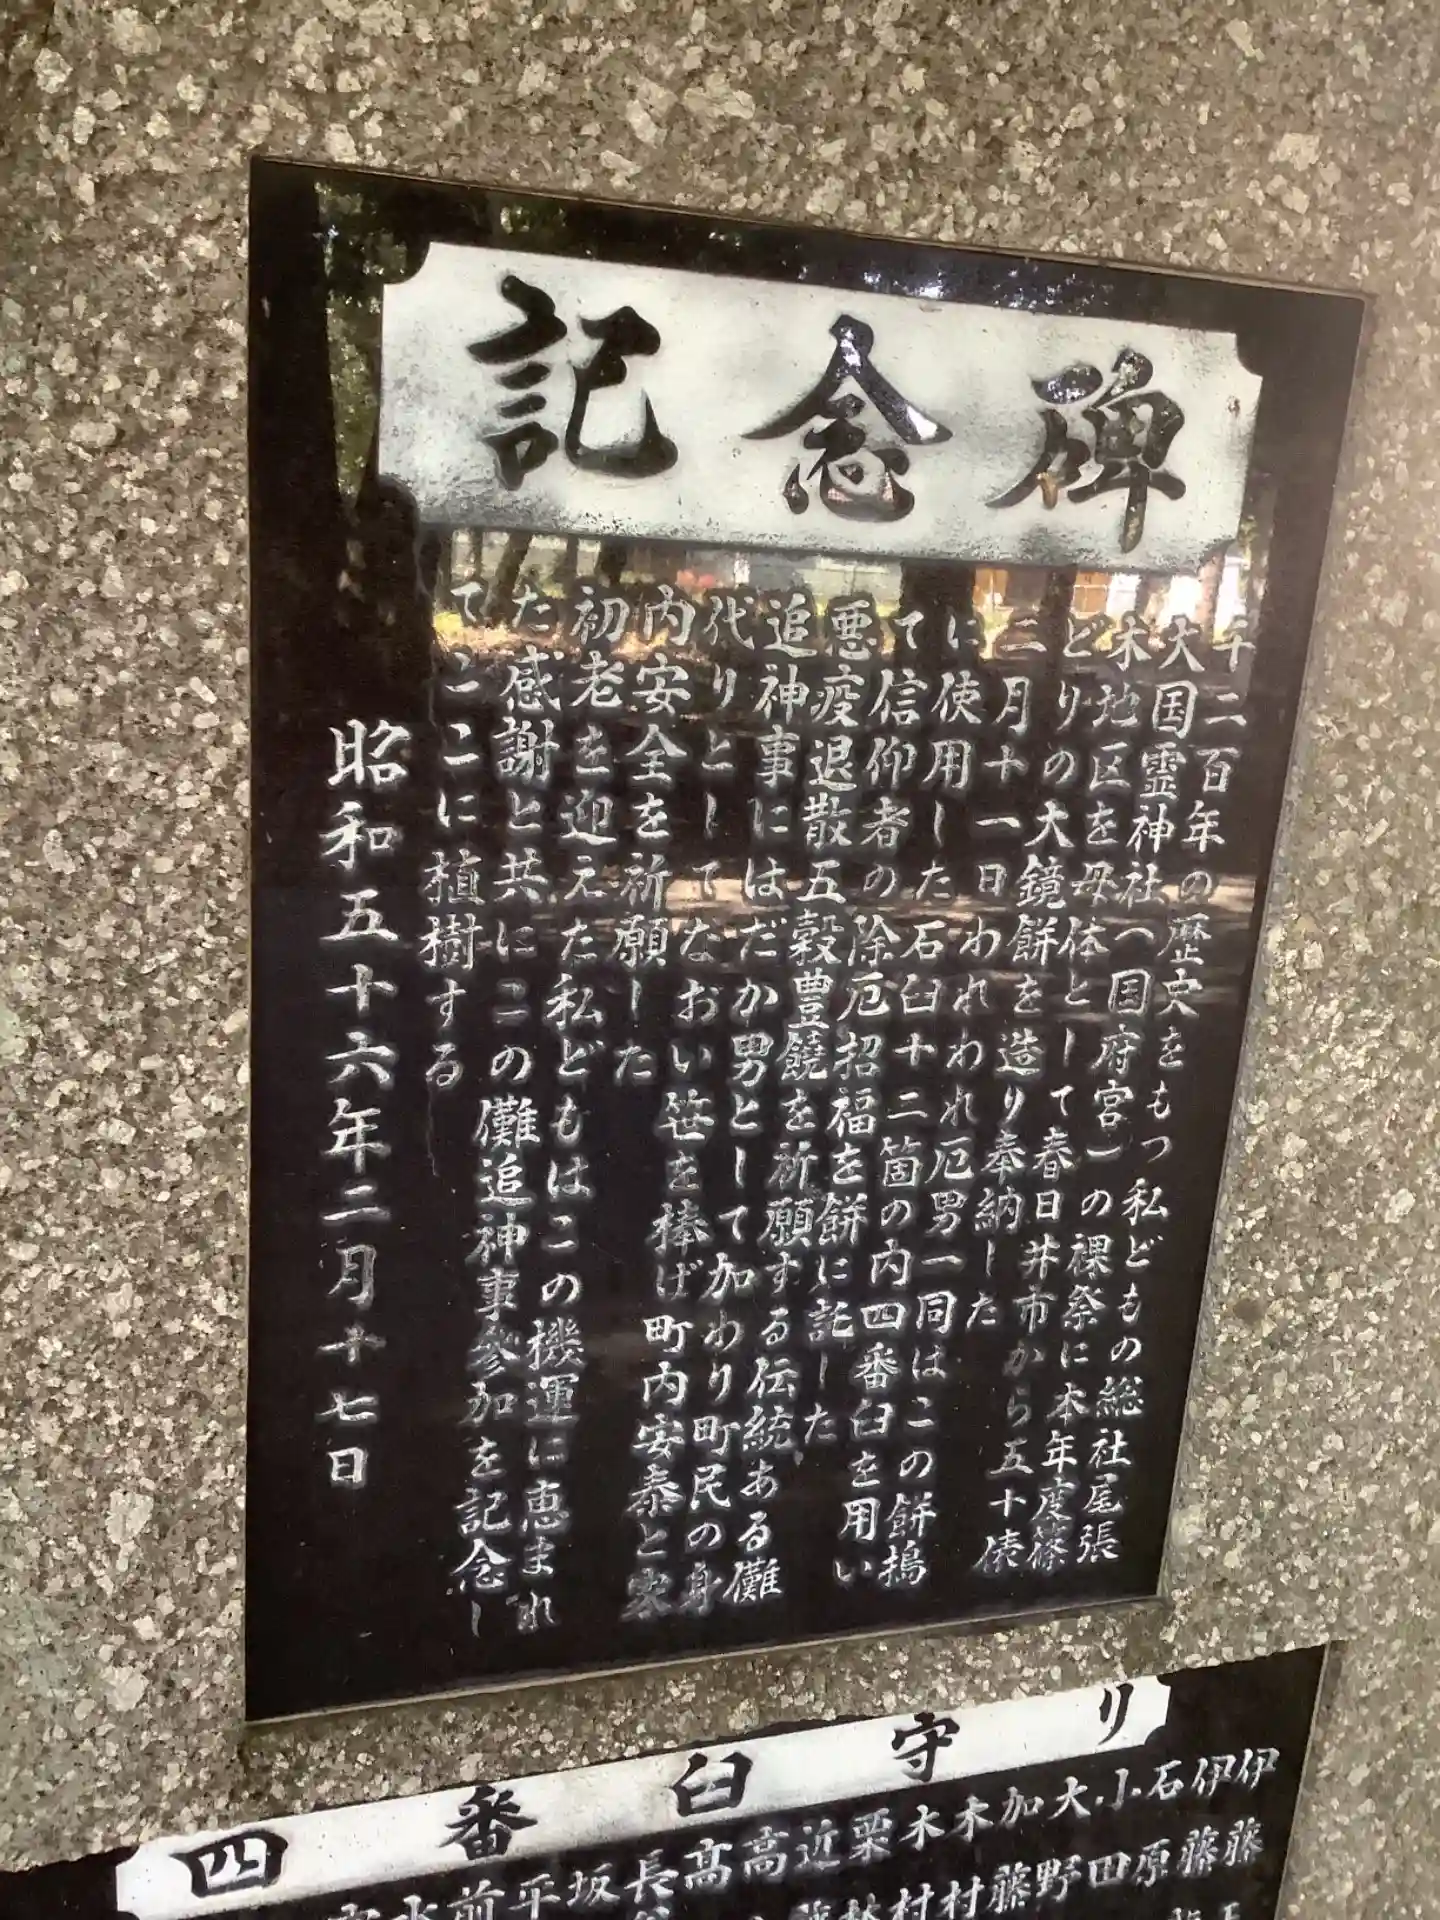 記念碑
千二百年の歴史をもつ私どもの総社尾張
大国霊神社(国府宮)の裸祭に本年度篠
木地区を母体として春日井市から五十俵
どりの大鏡餅を造り奉納した
二月十一日われわれ厄男一同はこの餅搗
に使用した石臼十二箇の内四番臼を用い
て信仰者の除厄招福を餅に託した
悪疫退散五穀豊饒を祈願する伝統ある儺
追神事にはだか男として加わり町民の身
代りとしてなおい笹を棒ば町内安泰と家
内安全を祈願した
初老を迎えた私どもはこの機運に恵まれ
た感謝と共にこの儺追神事参加を記念し
てここに植樹する
昭和五十六年二月十七日
四番臼守り
伊藤
伊藤
石原
小田
大野
加藤
木村
木村
栗林
近藤
高
高
長
坂
平
前
水